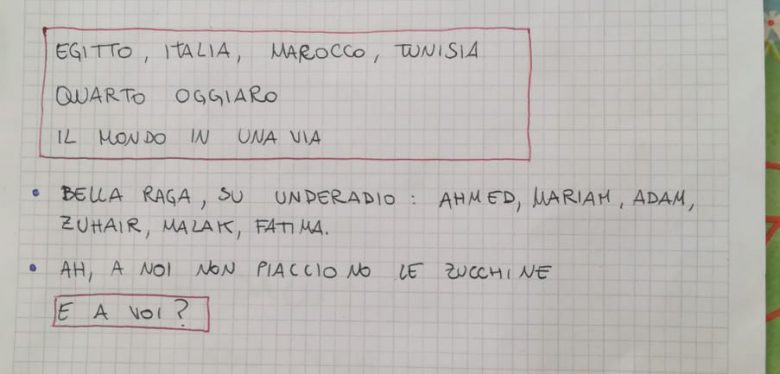 EGITTO, ITALIA, MAROCCO, TUNISIA
QUARTO OGGIARO
IL MONDO IN UNA VIA
• BELLA RAGA, SU UNDERADIO: AHMED, MARIAM, ADAM,
ZUHAIR, MALAK, FATIMA.
• AH, A NOI NON PIACCIONO LE ZUCCHINE
E A VOI?